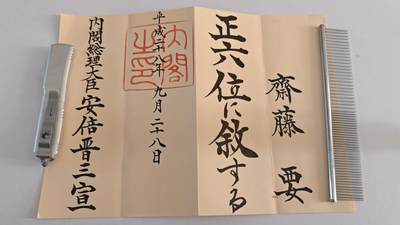 齋藤 要
正六位に敘する
平成二十八年九月二十八日
内閣之印
内閣総理大臣 安倍晋三宣